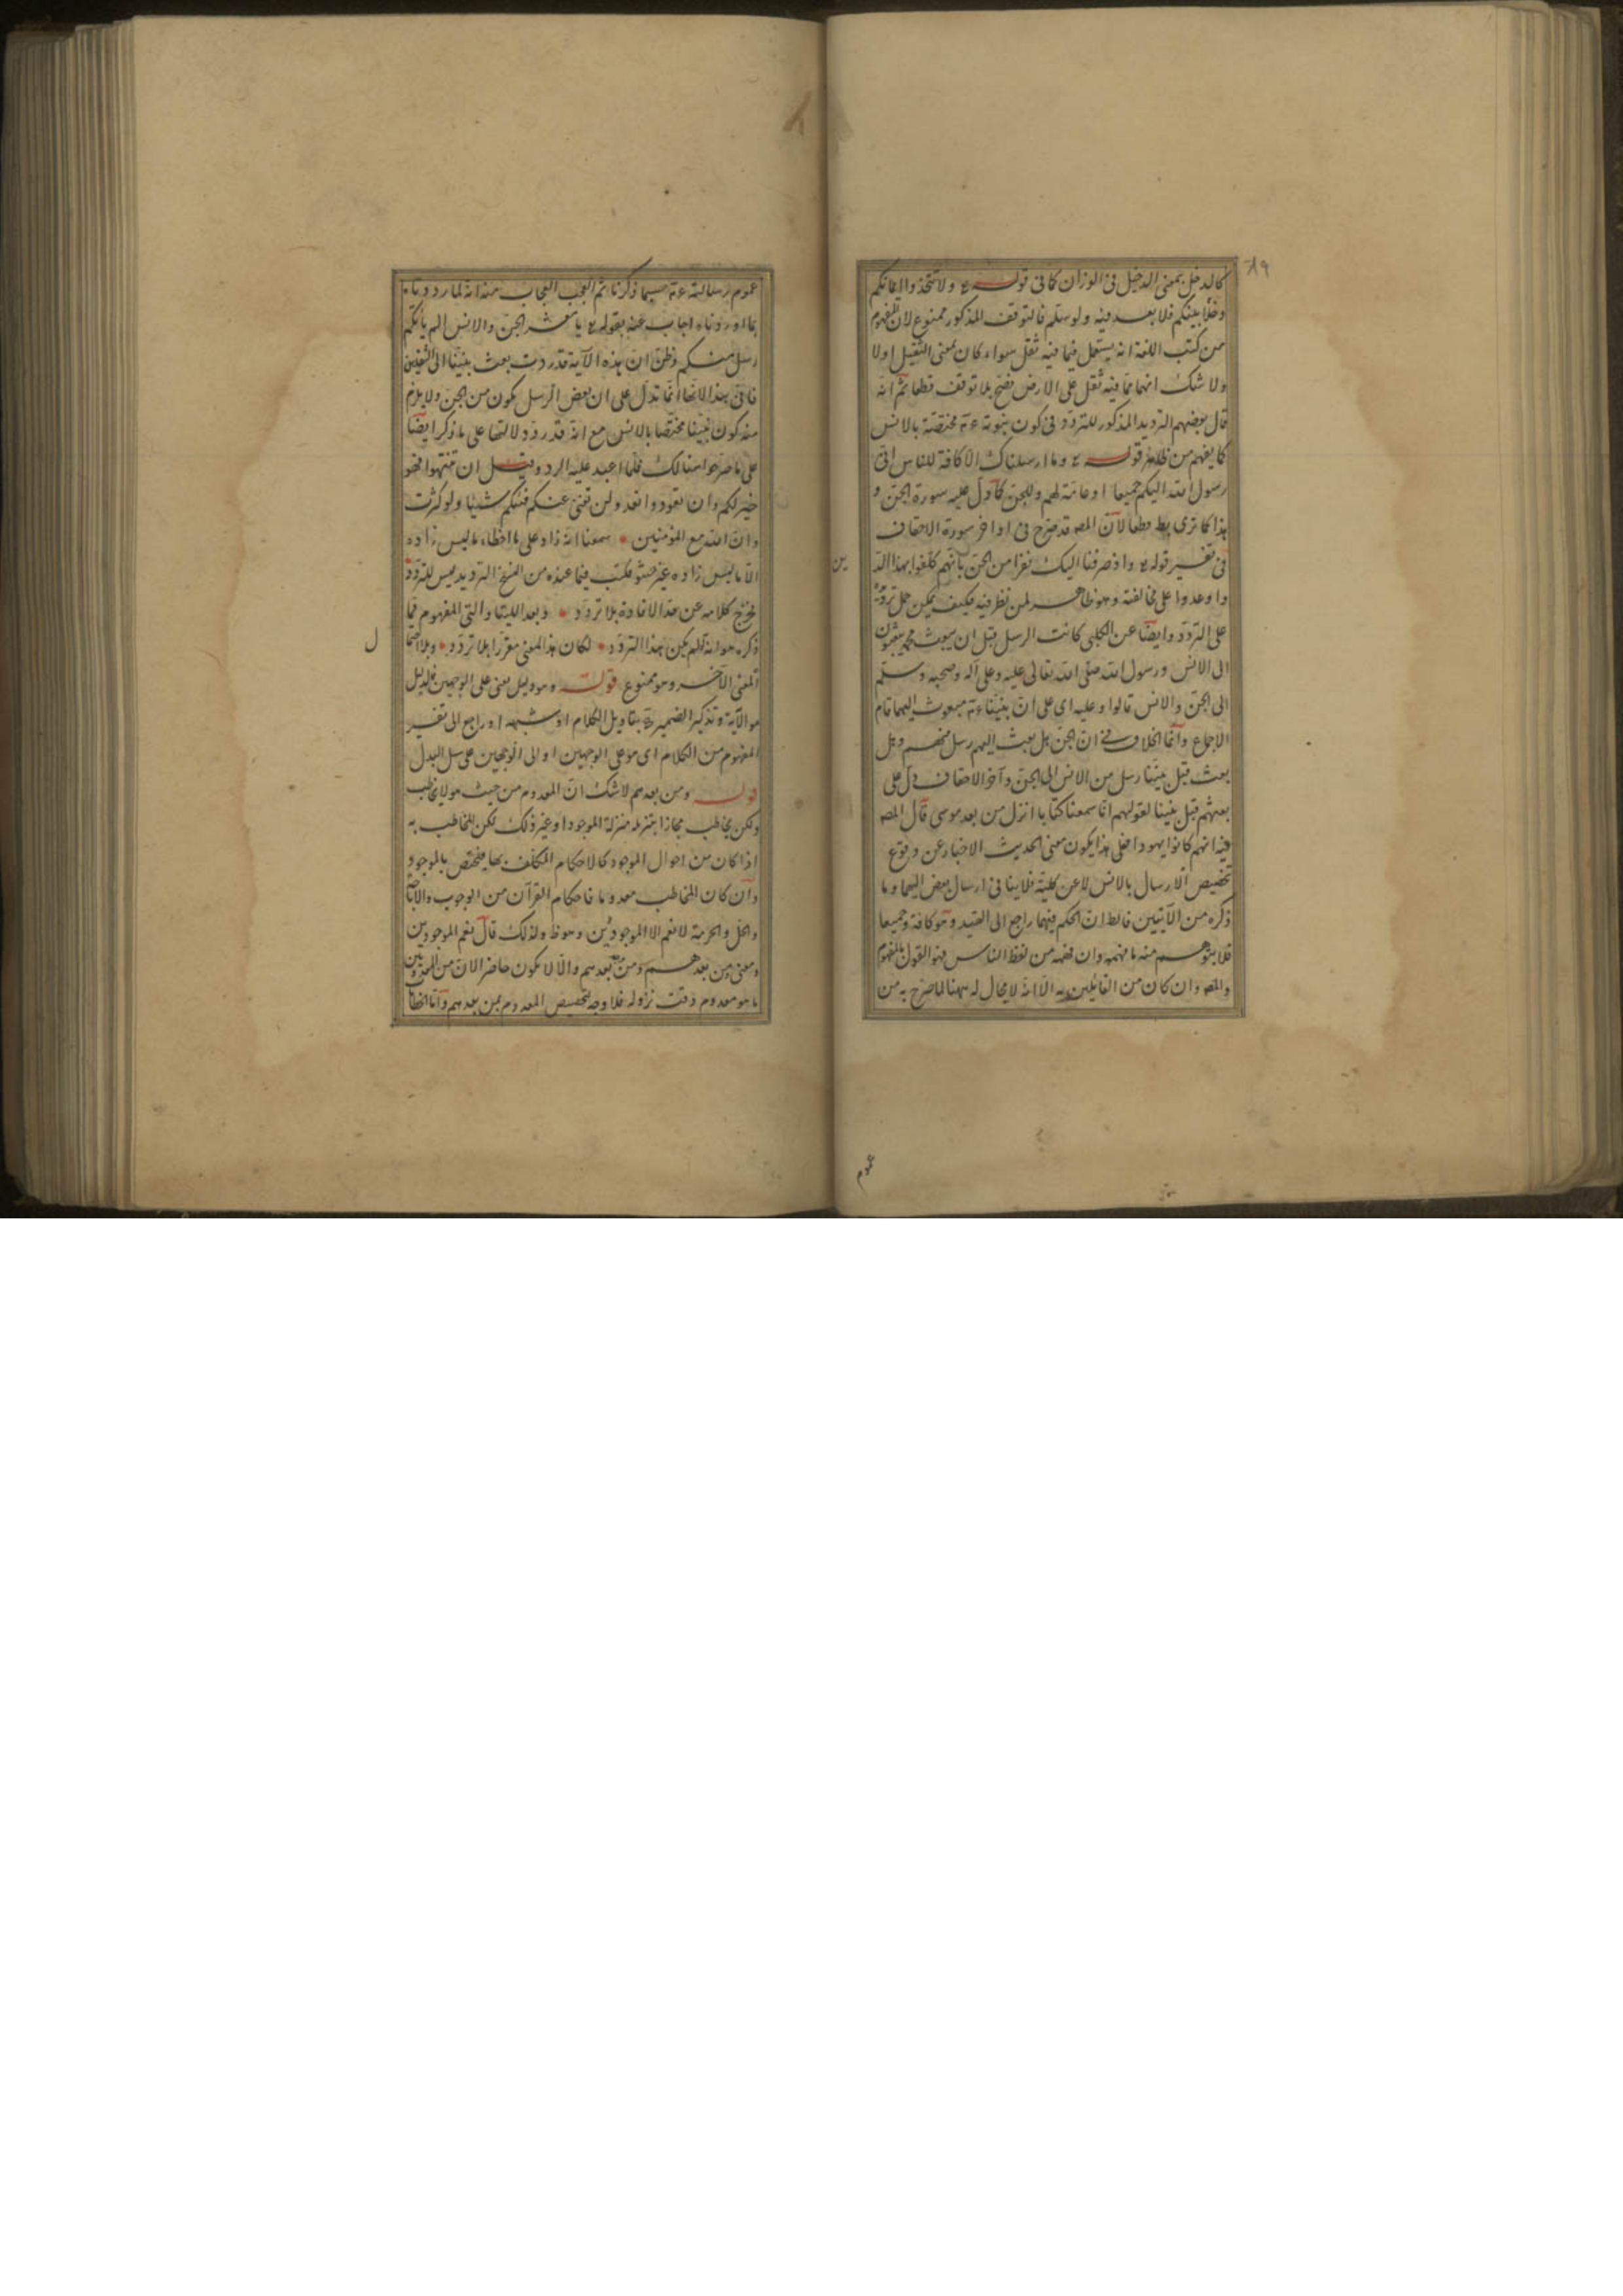 ٨٩
كالدخل بمعنى الدخيل فى الوزان كما فى قوله تع ولا تتخذوا ايمانكم
دخلا بينكم فلا بعد فيه ولو سلم فالتوقف المذكور ممنوع لان المفهوم
من كتب اللغة انه يستعمل فيما فيه ثقل سواء كان بمعنى الثقيل اولا
ولا شك انهما مما فيه ثقل على الارض فصح بلا توقف قطعا ثم انه
قال بعضهم الترديد المذكور للتردد فى كون نبوته عم مختصة بالانس
كما يفهم من ظاهر قوله تع وما ارسلناك الا كافة للناس انى
رسول الله اليكم جميعا او عامة لهم وللجن كما دل عليه سورة الجن و
هذا كما ترى قطعا لان المص قد صرح فى اواخر سورة الاحقاف
فى تفسير قوله تع واذ صرفنا اليك نفرا من الجن بانهم كلفوا بهذا الد
ين
واوعدوا على مخالفته وهو ظاهر لمن نظر فيه فكيف يمكن حمل ترديده
على التردد وايضا عن الكلبى كانت الرسل قبل ان يبعث محمد يبعثون
الى الانس ورسول الله صلى الله تعالى عليه وعلى آله وصحبه وسلم
الى الجن والانس قالوا وعليه اى على ان نبينا عم مبعوث اليهما قام
الاجماع وانما الخلاف فى ان الجن هل بعث اليهم رسل منهم وهل
بعث قبل نبينا رسل من الانس الى الجن وآخر الاحقاف دل على
بعثهم قبل نبينا لقولهم انا سمعنا كتابا انزل من بعد موسى قال المص
فيه انهم كانوا يهودا فعلى هذا يكون معنى الحديث الاخبار عن وقوع
تخصيص الارسال بالانس لا عن كلية فلا ينافى ارسال بعض اليهما وما
ذكره من الآيتين فالظ ان الحكم فيهما راجع الى القيد وهو كافة وجميعا
فلا يتوهم منه ما فهمه وان فهمه من لفظ الناس فهو القول بالمفهوم
والمص وان كان من القائلين به الا انه لا مجال له ههنا لما صرح به من
عموم
عموم رسالته عم حسبما ذكرنا ثم العجب العجاب منه انه لما رددناه
بما اوردناه اجاب عنه بقوله تع يا معشر الجن والانس الم ياتكم
رسل منكم وظن ان هذه الآية قد ردت بعث نبينا الى الثقلين
فاتى بهذا لانها انما تدل على ان بعض الرسل يكون من الجن ولا يلزم
منه كون نبينا مختصا بالانس مع انه قد ردد دلالتها على ما ذكر ايضا
على ما صرحوا هنالك فلما اعيد عليه الرد وقيل ان تنتهوا فهو
خير لكم وان تعودوا نعد ولن تغنى عنكم فئتكم شيئا ولو كثرت
وان الله مع المؤمنين • سمعنا انه زاد على ما اخطاء ما ليس زاده
الا ما ليس زاده غير حشو فكتب فيما عنده من النسخ الترديد ليس للتردد •
فخرج كلامه عن حد الافادة بلا تردد • وبعد اللتيا والتى المفهوم مما
ذكره هو انه لو لم يكن هذا التردد • لكان هذا المعنى مقررا بلا تردد • وبلا احتما
ل
المعنى الآخر وهو ممنوع قوله وهو دليل معنى على الوجهين فالدليل
هو الآية وتذكير الضمير بتاويل الكلام او شبهه او راجع الى تفسير
المفهوم من الكلام اى هو على الوجهين او الى الوجهين على سبيل البدل
قوله ومن بعدهم لا شك ان المعدوم من حيث هو لا يخاطب
ولكن يخاطب مجازا بتنزيله منزلة الموجود او غير ذلك لكن المخاطب به
اذا كان من احوال الموجود كالاحكام المكلف بها يختص بالموجود
وان كان المخاطب معدوما فاحكام القرآن من الوجوب والاباحة
والحل والحرمة لا تعم الا الموجودين وهو ظ ولذلك قال تعم الموجودين
ومعنى من بعدهم ومن بعدهم والا لا يكون حاضر الآن من المعدومين
ما هو معدوم وقت نزوله فلا وجه لتخصيص المعدوم بمن بعدهم واما الخطاب